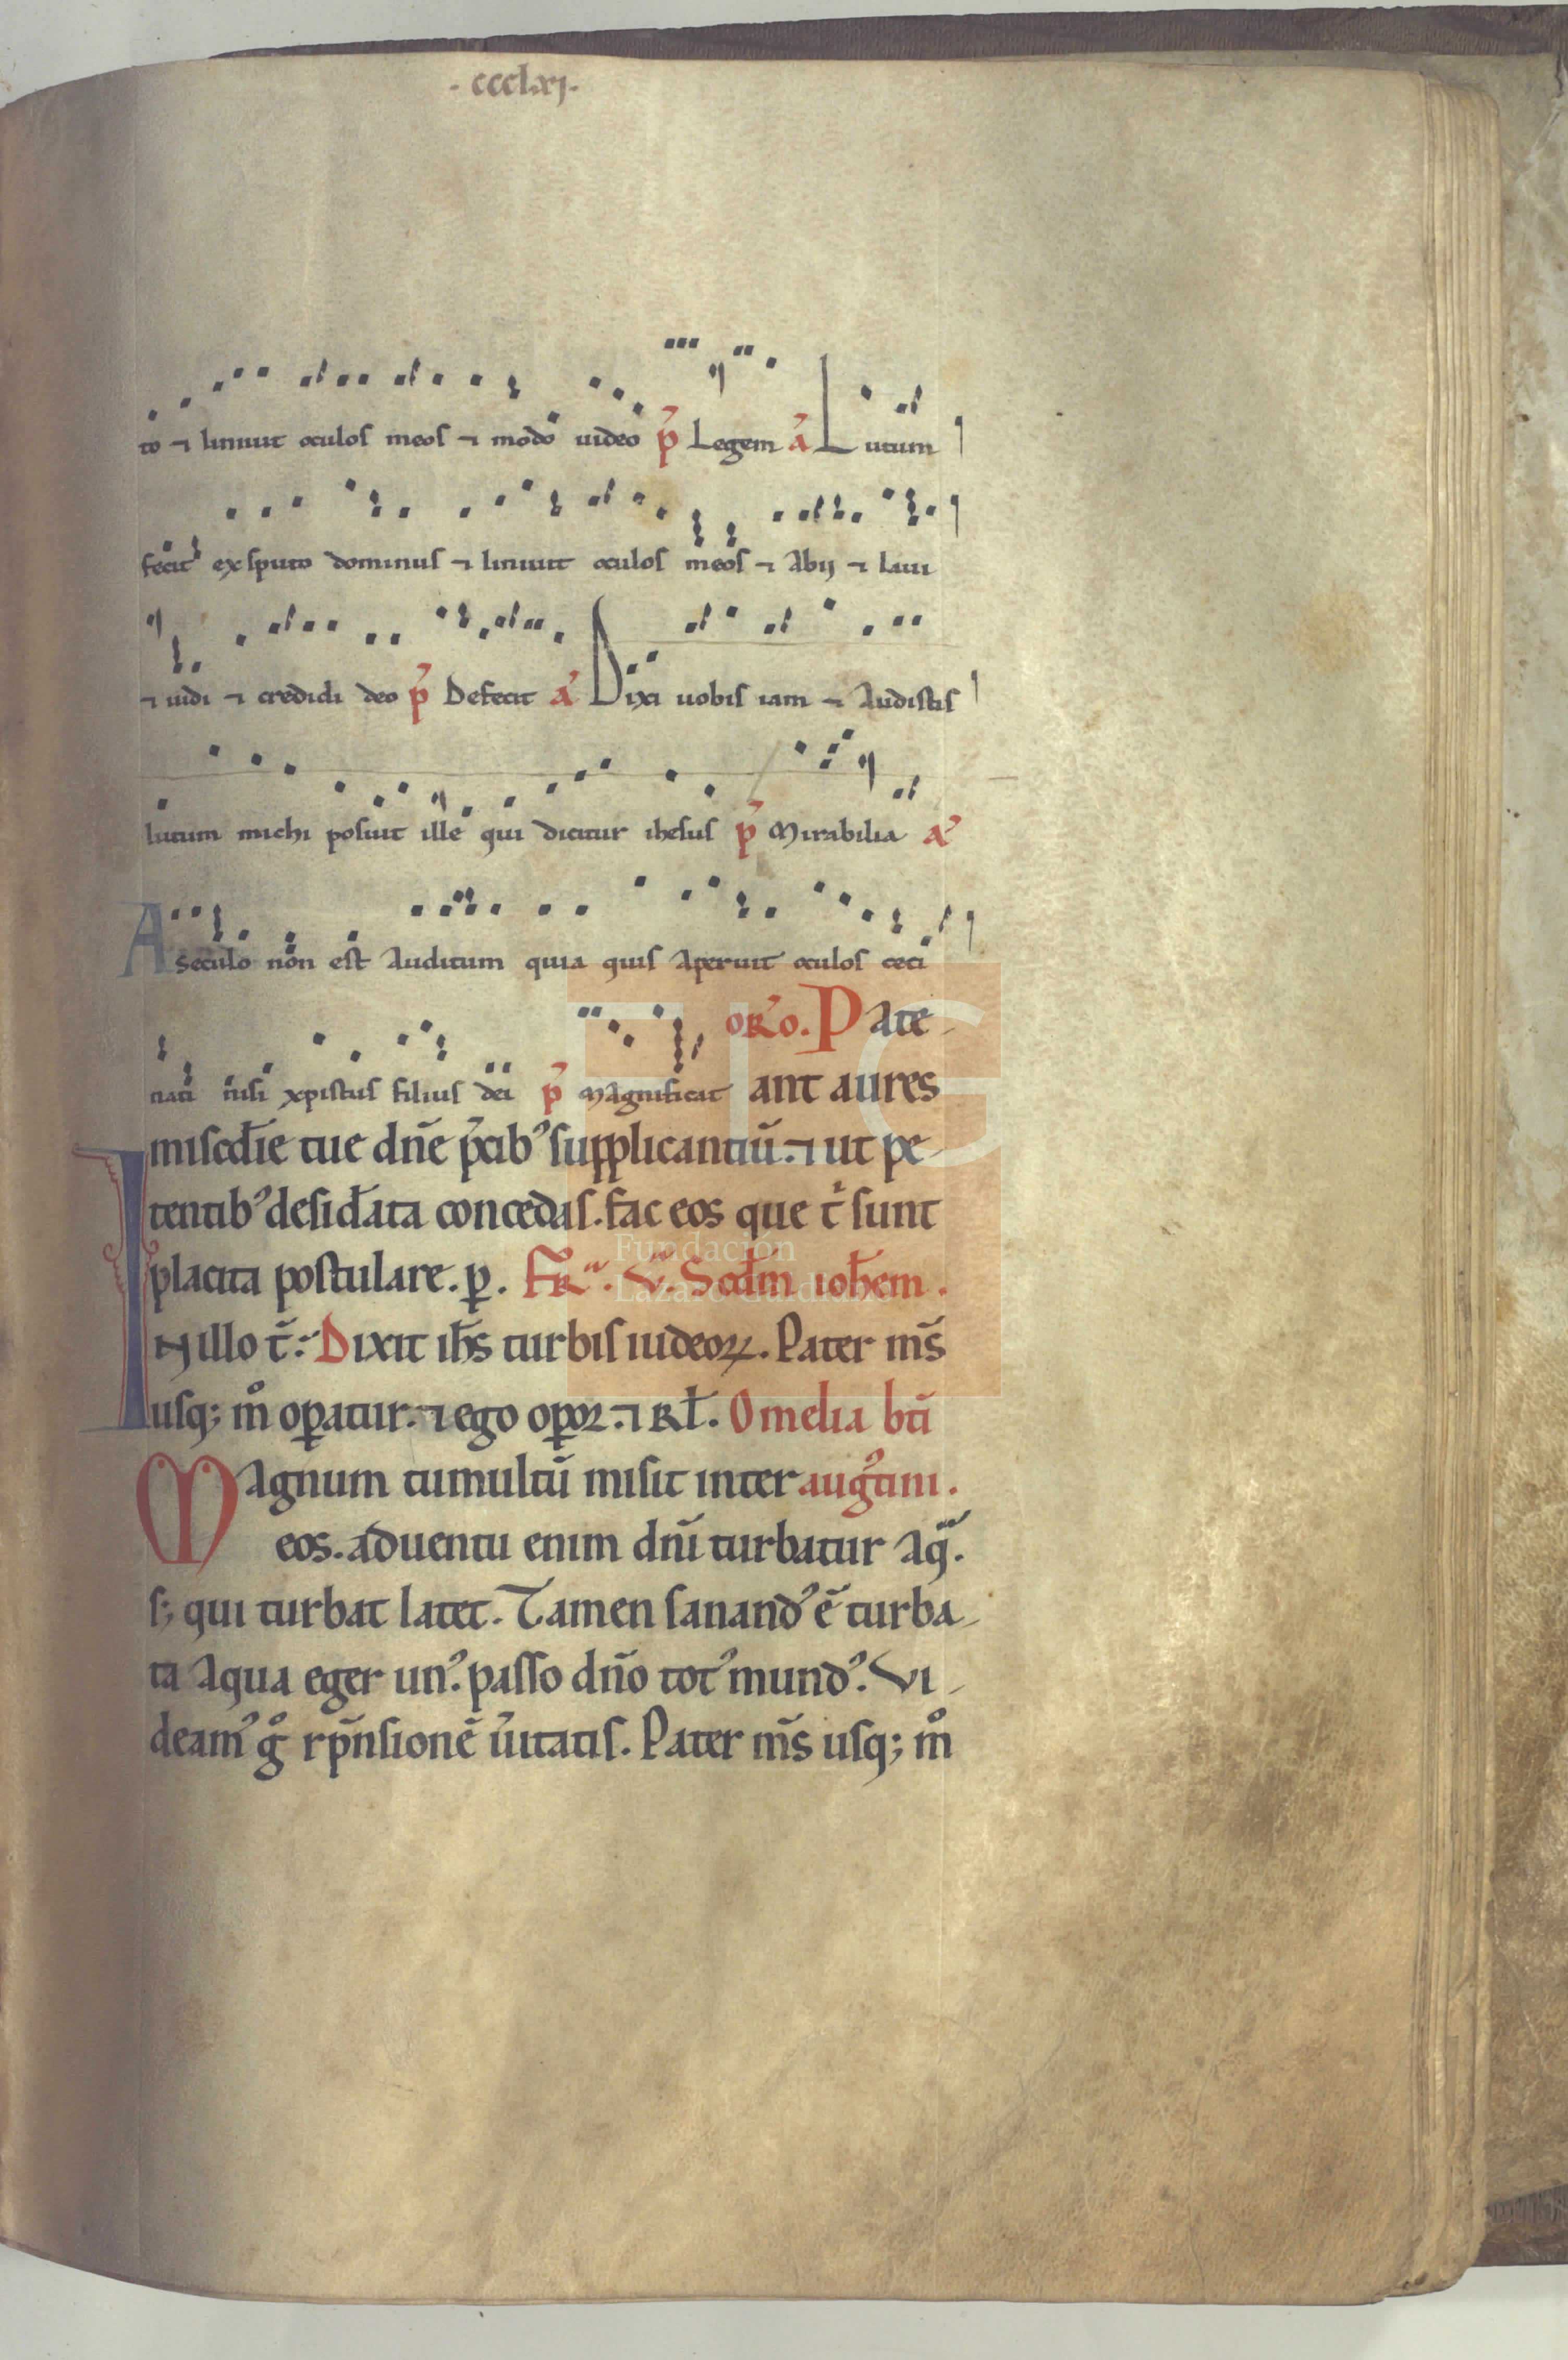 · ccclxj ·
to ⁊ liniuit oculos meos ⁊ modo uideo p̉ Legem a̓ Lutum
fecit ex sputo dominus ⁊ liniuit oculos meos ⁊ abij ⁊ laui
⁊ uidi ⁊ credidi deo p̉ Defecit a̓ Dixi uobis iam ⁊ audistis
lutum michi posuit ille qui dicitur ihesus p̉ Mirabilia a̓
A seculo non est auditum quia quis aperuit oculos ceci
nati nisi xpistus filius dei p̉ Magnificat oR̓o. Pate-
ant aures
miscd̄ie tue dn̄e p̄cibꝰ supplicantiū. ⁊ ut pe-
tentibꝰ desid̄ata concedas. fac eos que t̄ sunt
placita postulare. p. FR̄ª. v. Scd̄m ioh̄em.
IN illo t̄. Dixit ih̄s turbis iudeoꝝ. Pater m̄s
usq; m̊ oꝑatur. ⁊ ego oꝑoꝛ. ⁊ Rl̄. Omelia bt̄i
Magnum tumultū misit inter aug̓tini.
eos. aduentu enim dn̄i turbatur aq̄.
s; qui turbat latet. Tamen sanandꝰ ē turba-
ta aqua eger unꝰ. passo dn̄o totꝰ mundꝰ. Vi-
deamꝰ g̊ rp̄nsionē ūitatis. Pater m̄s usq; m̊
Fundación
Lázaro Galdiano